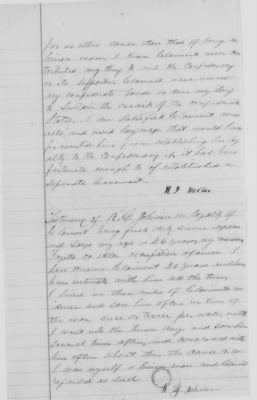 for no other cause than that of being a
Union man. I know Claimant never con-
tributed any thing to aid the Confederacy
or its supporters. Claimant never owned
any confederate bonds or done any thing
to sustain the credit of the confederate
States. I am satisfied Claimant never
acts, and used language that would have
prevented him from establishing his loy-
alty to the Confederacy, if it had been
fortunate enough to of established a
separate Government.
Testimony of R. G. Johnson on loyalty of
Claimant being first duly sworn deposes
and says my age is 46 years my residence
Fayette co. Ala. occupation a farmer. I
have known Claimant 20 years and have
been intimate with him all the time.
I lived in three miles of Claimant's res-
idence and saw him often in time of
the war, once or twice per week, until
I went into the Union Army, and saw him
several times after, and conversed with
him often about the war
I was myself a Union man and Claimant
regarded as such